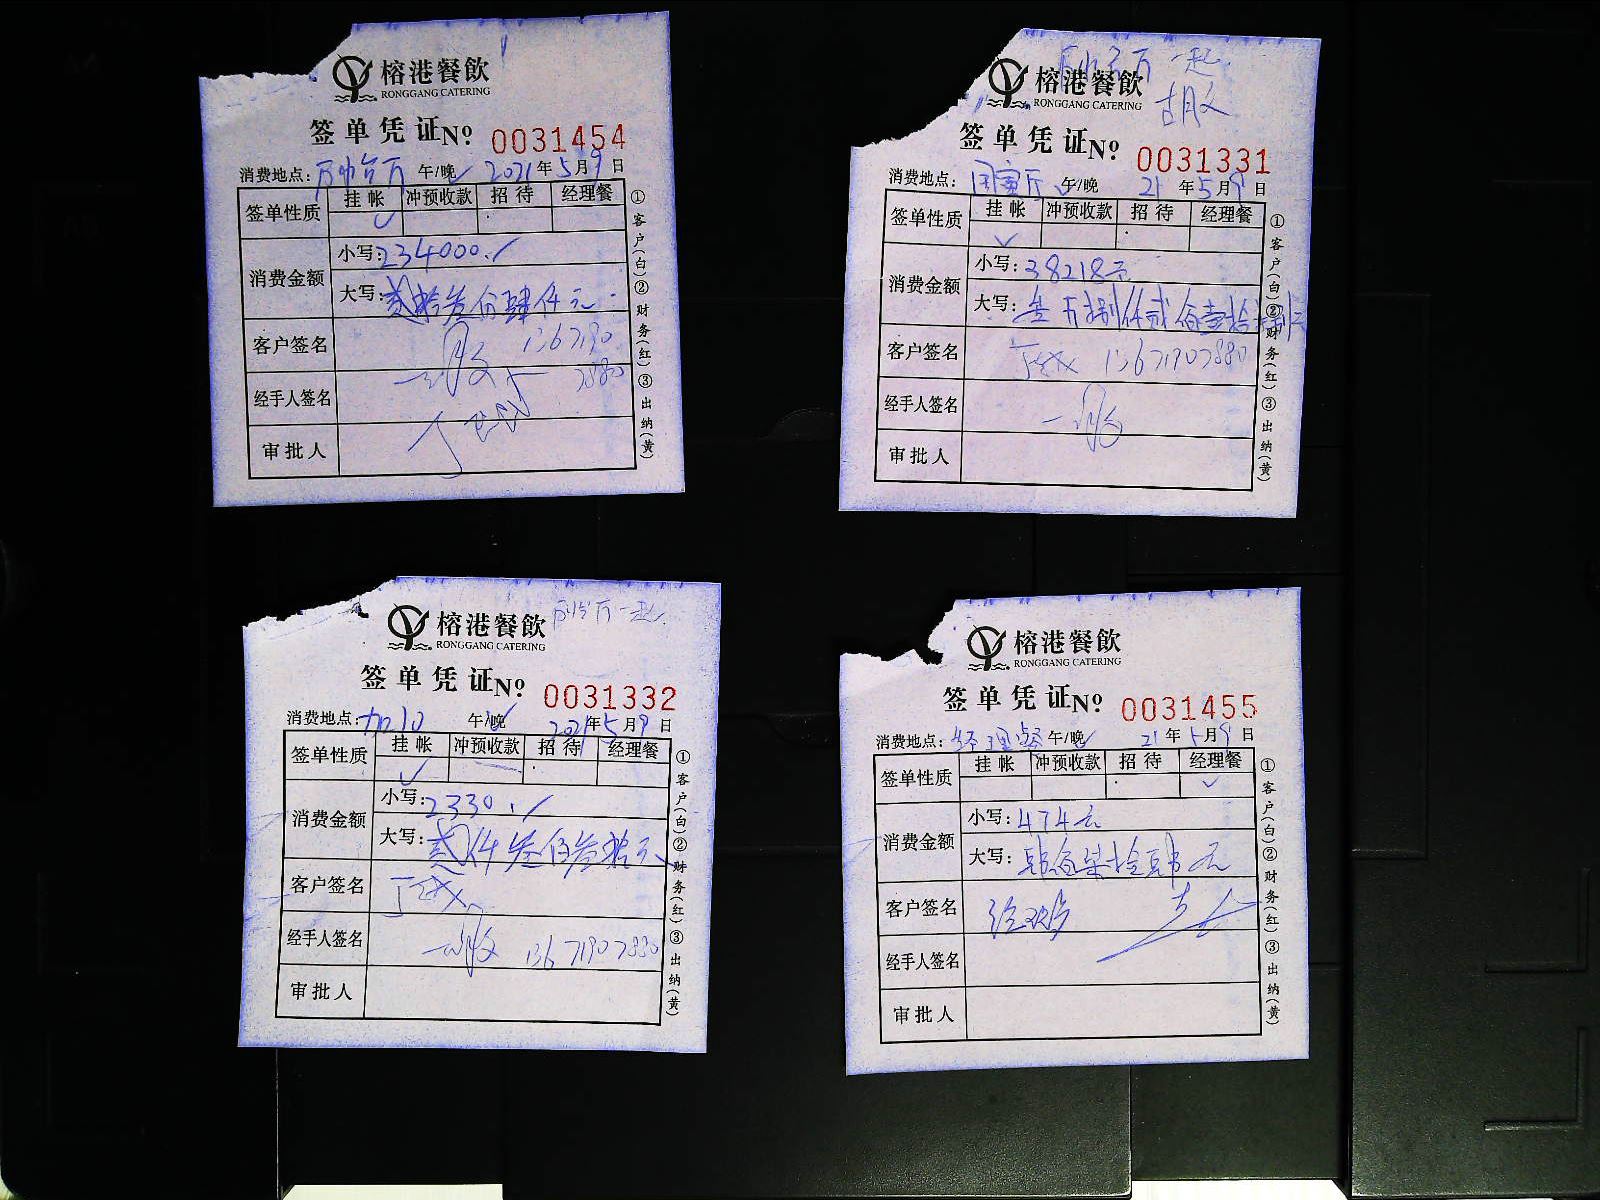 榕港餐飲
RONGGANG CATERING
签单凭证 Nº 0031454
消费地点: 午/晚 2021年5月9日
签单性质 挂帐 冲预收款 招待 经理餐
消费金额 小写:234000.
大写:贰拾叁万肆仟元
客户签名 1367190
7880
经手人签名
审批人
①客户(白)②财务(红)③出纳(黄)
一起
榕港餐飲
RONGGANG CATERING
签单凭证 Nº 0031331
消费地点: 国宴厅 午/晚 21年5月9日
签单性质 挂帐 冲预收款 招待 经理餐
消费金额 小写:38218元
大写:叁万捌仟贰佰壹拾捌元
客户签名 13671907880
经手人签名
审批人
①客户(白)②财务(红)③出纳(黄)
厅一起
榕港餐飲
RONGGANG CATERING
签单凭证 Nº 0031332
消费地点: 午/晚 2021年5月9日
签单性质 挂帐 冲预收款 招待 经理餐
消费金额 小写:2330.
大写:贰仟叁佰叁拾元
客户签名
经手人签名 13671907880
审批人
①客户(白)②财务(红)③出纳(黄)
榕港餐飲
RONGGANG CATERING
签单凭证 Nº 0031455
消费地点: 经理餐 午/晚 21年5月9日
签单性质 挂帐 冲预收款 招待 经理餐
消费金额 小写:474元
大写:肆佰柒拾肆元
客户签名
经手人签名
审批人
①客户(白)②财务(红)③出纳(黄)